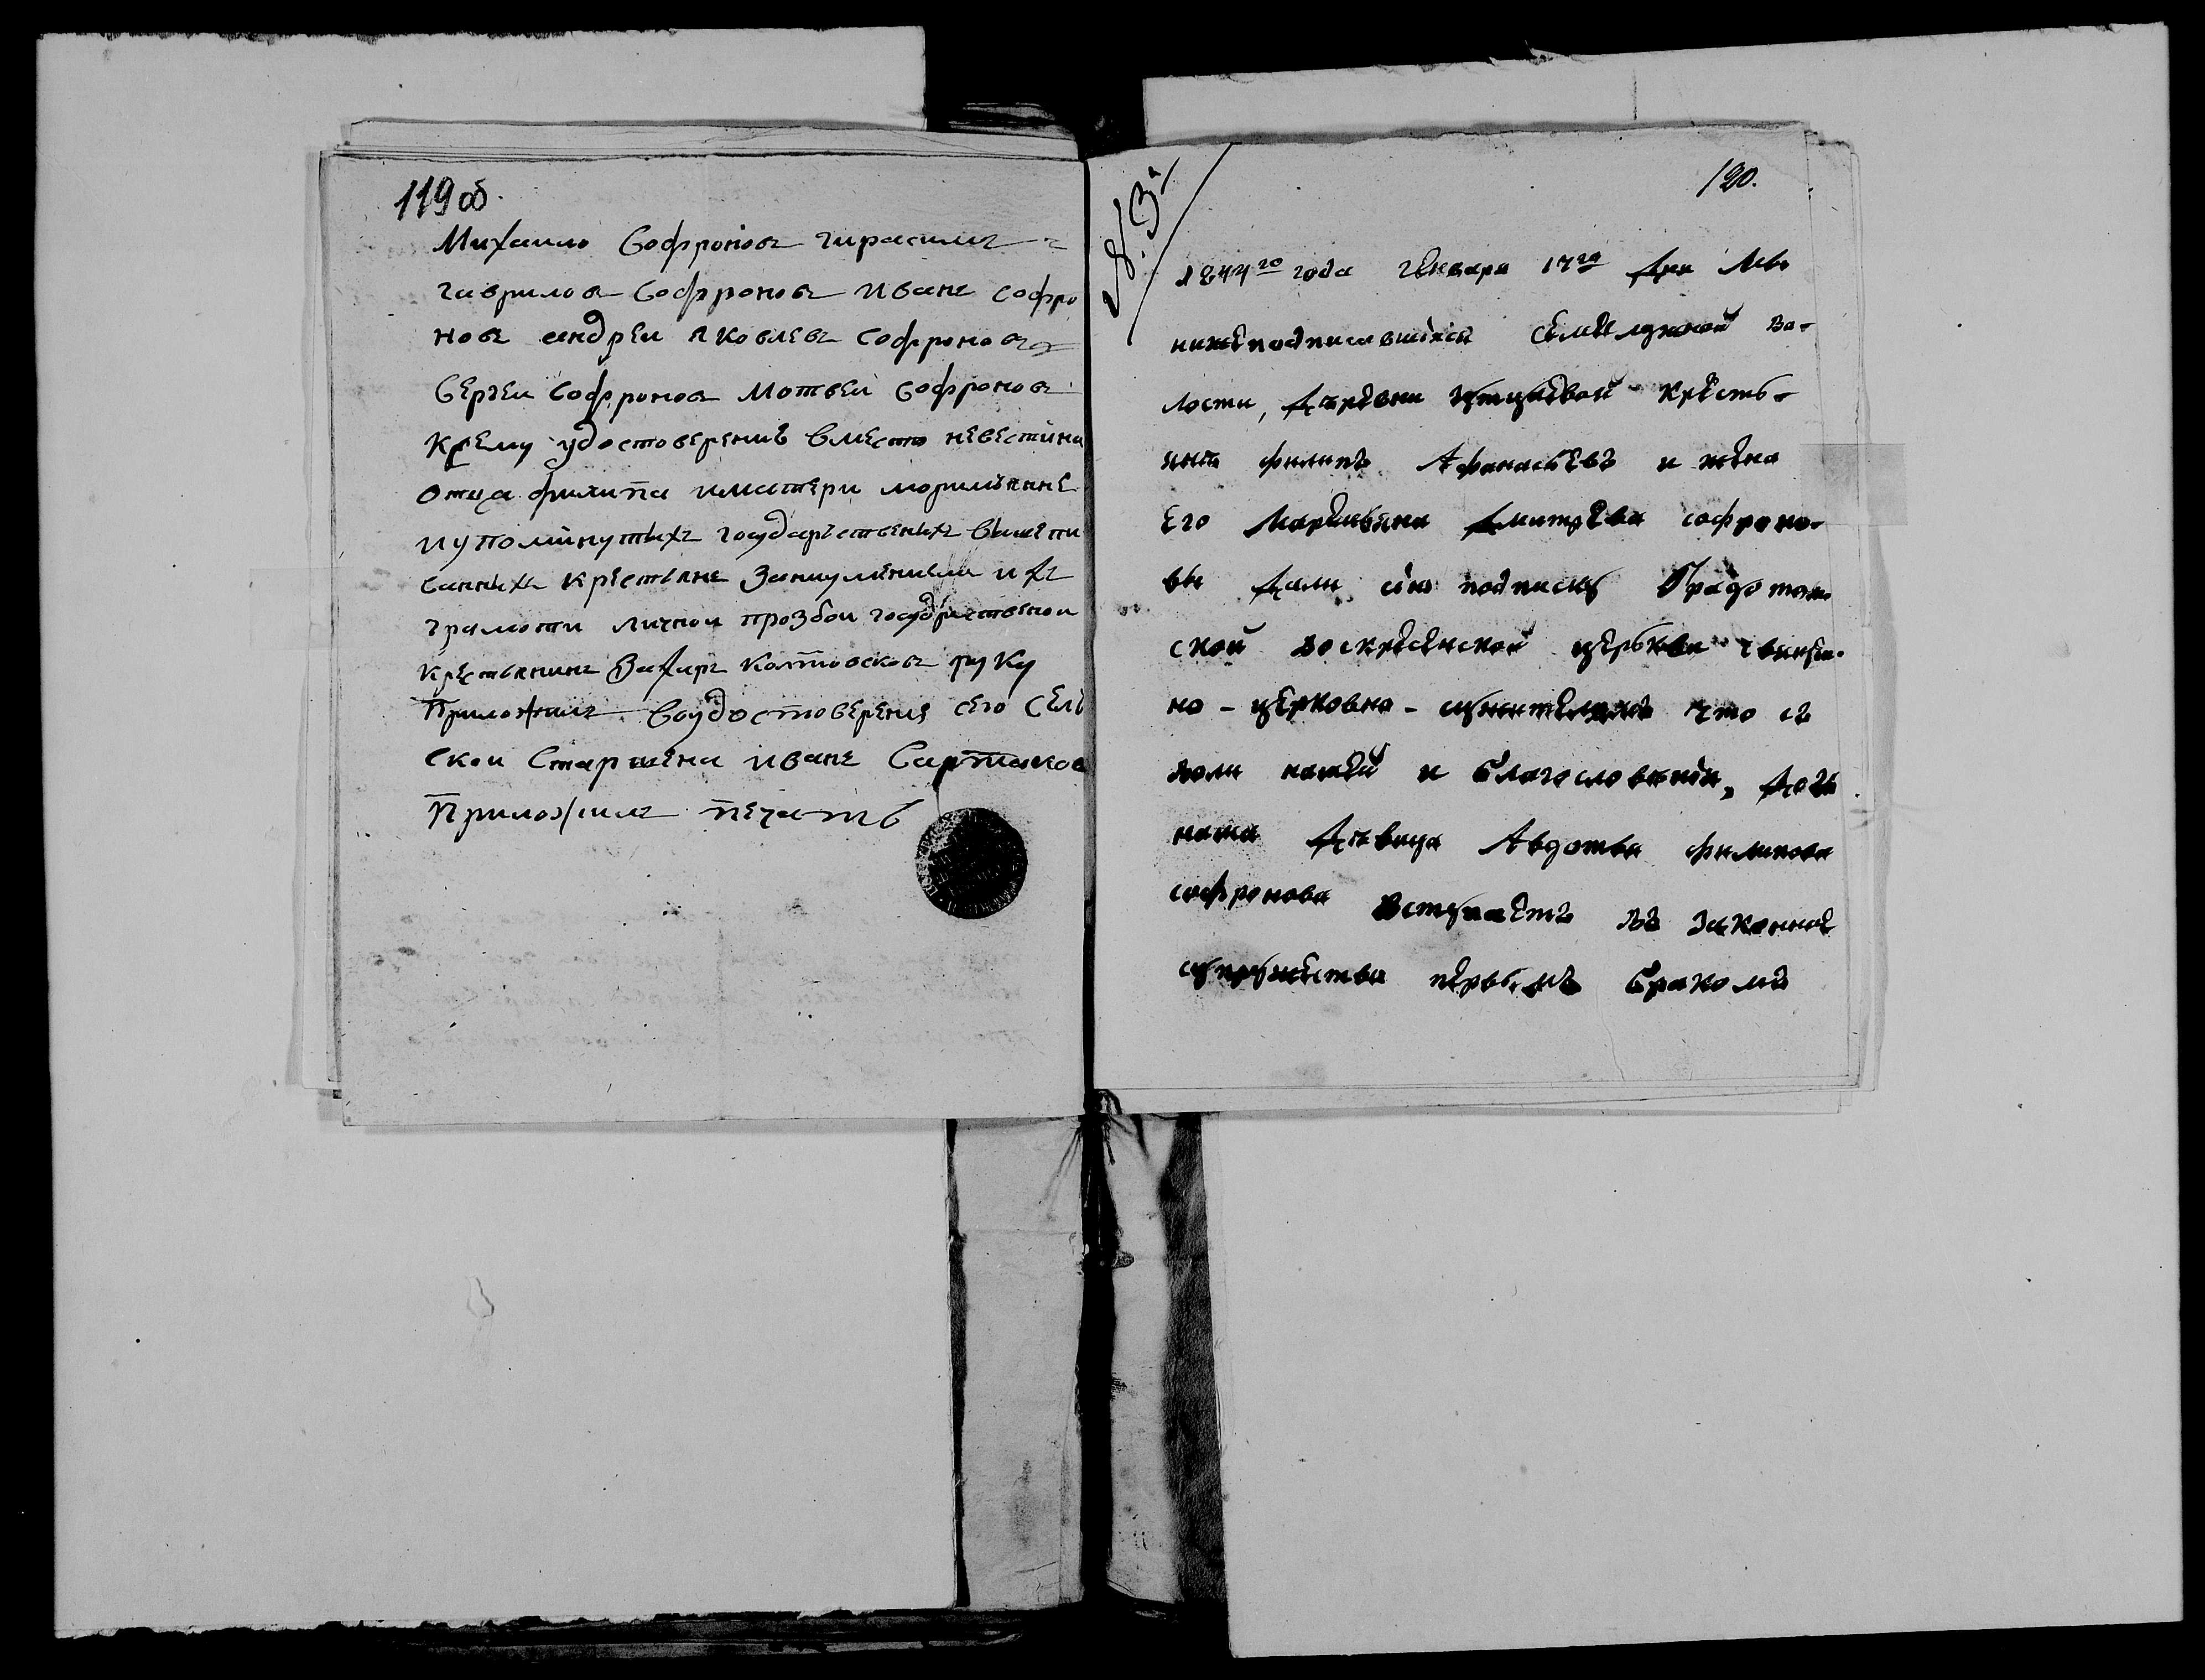 119 об.
Михаило Софроновъ гирасимъ
гаврилов Софроновъ Иванъ софро
новъ андреи яковлевъ софроновъ
Сергеи софроновъ Мотвеи софроновъ
Крему удостоверению вместо невестина
отца филипа иматери моримьянне
иупомінутыхъ государственихъ вышепи
санныхъ крестьянъ Занеумениеми ихъ
грамоти личнои прозбои государственои
крестьянинъ Захаръ Колтовсковъ руку
Приложилъ Воудостоверения сего Сель
скои Старшена иванъ Сартаков
Приложилъ печать
120.
№ 3й
1844го года Генваря 17го дня Мы
нижеподписавшіися Семилужной во-
лости, деревни крѣсть-
инъ филипъ Афанасьевъ и жена
его Маремьяна Дмитрева софроно-
вы дали сію подписку Градотом-
ской воскресенской церькви священ-
но-церковно-служителямъ что съ
воли нашей и благословенія, дочь
наша дѣвица Авдотья филипова
софронова вступаетъ въ законное
супружество первымъ бракомъ